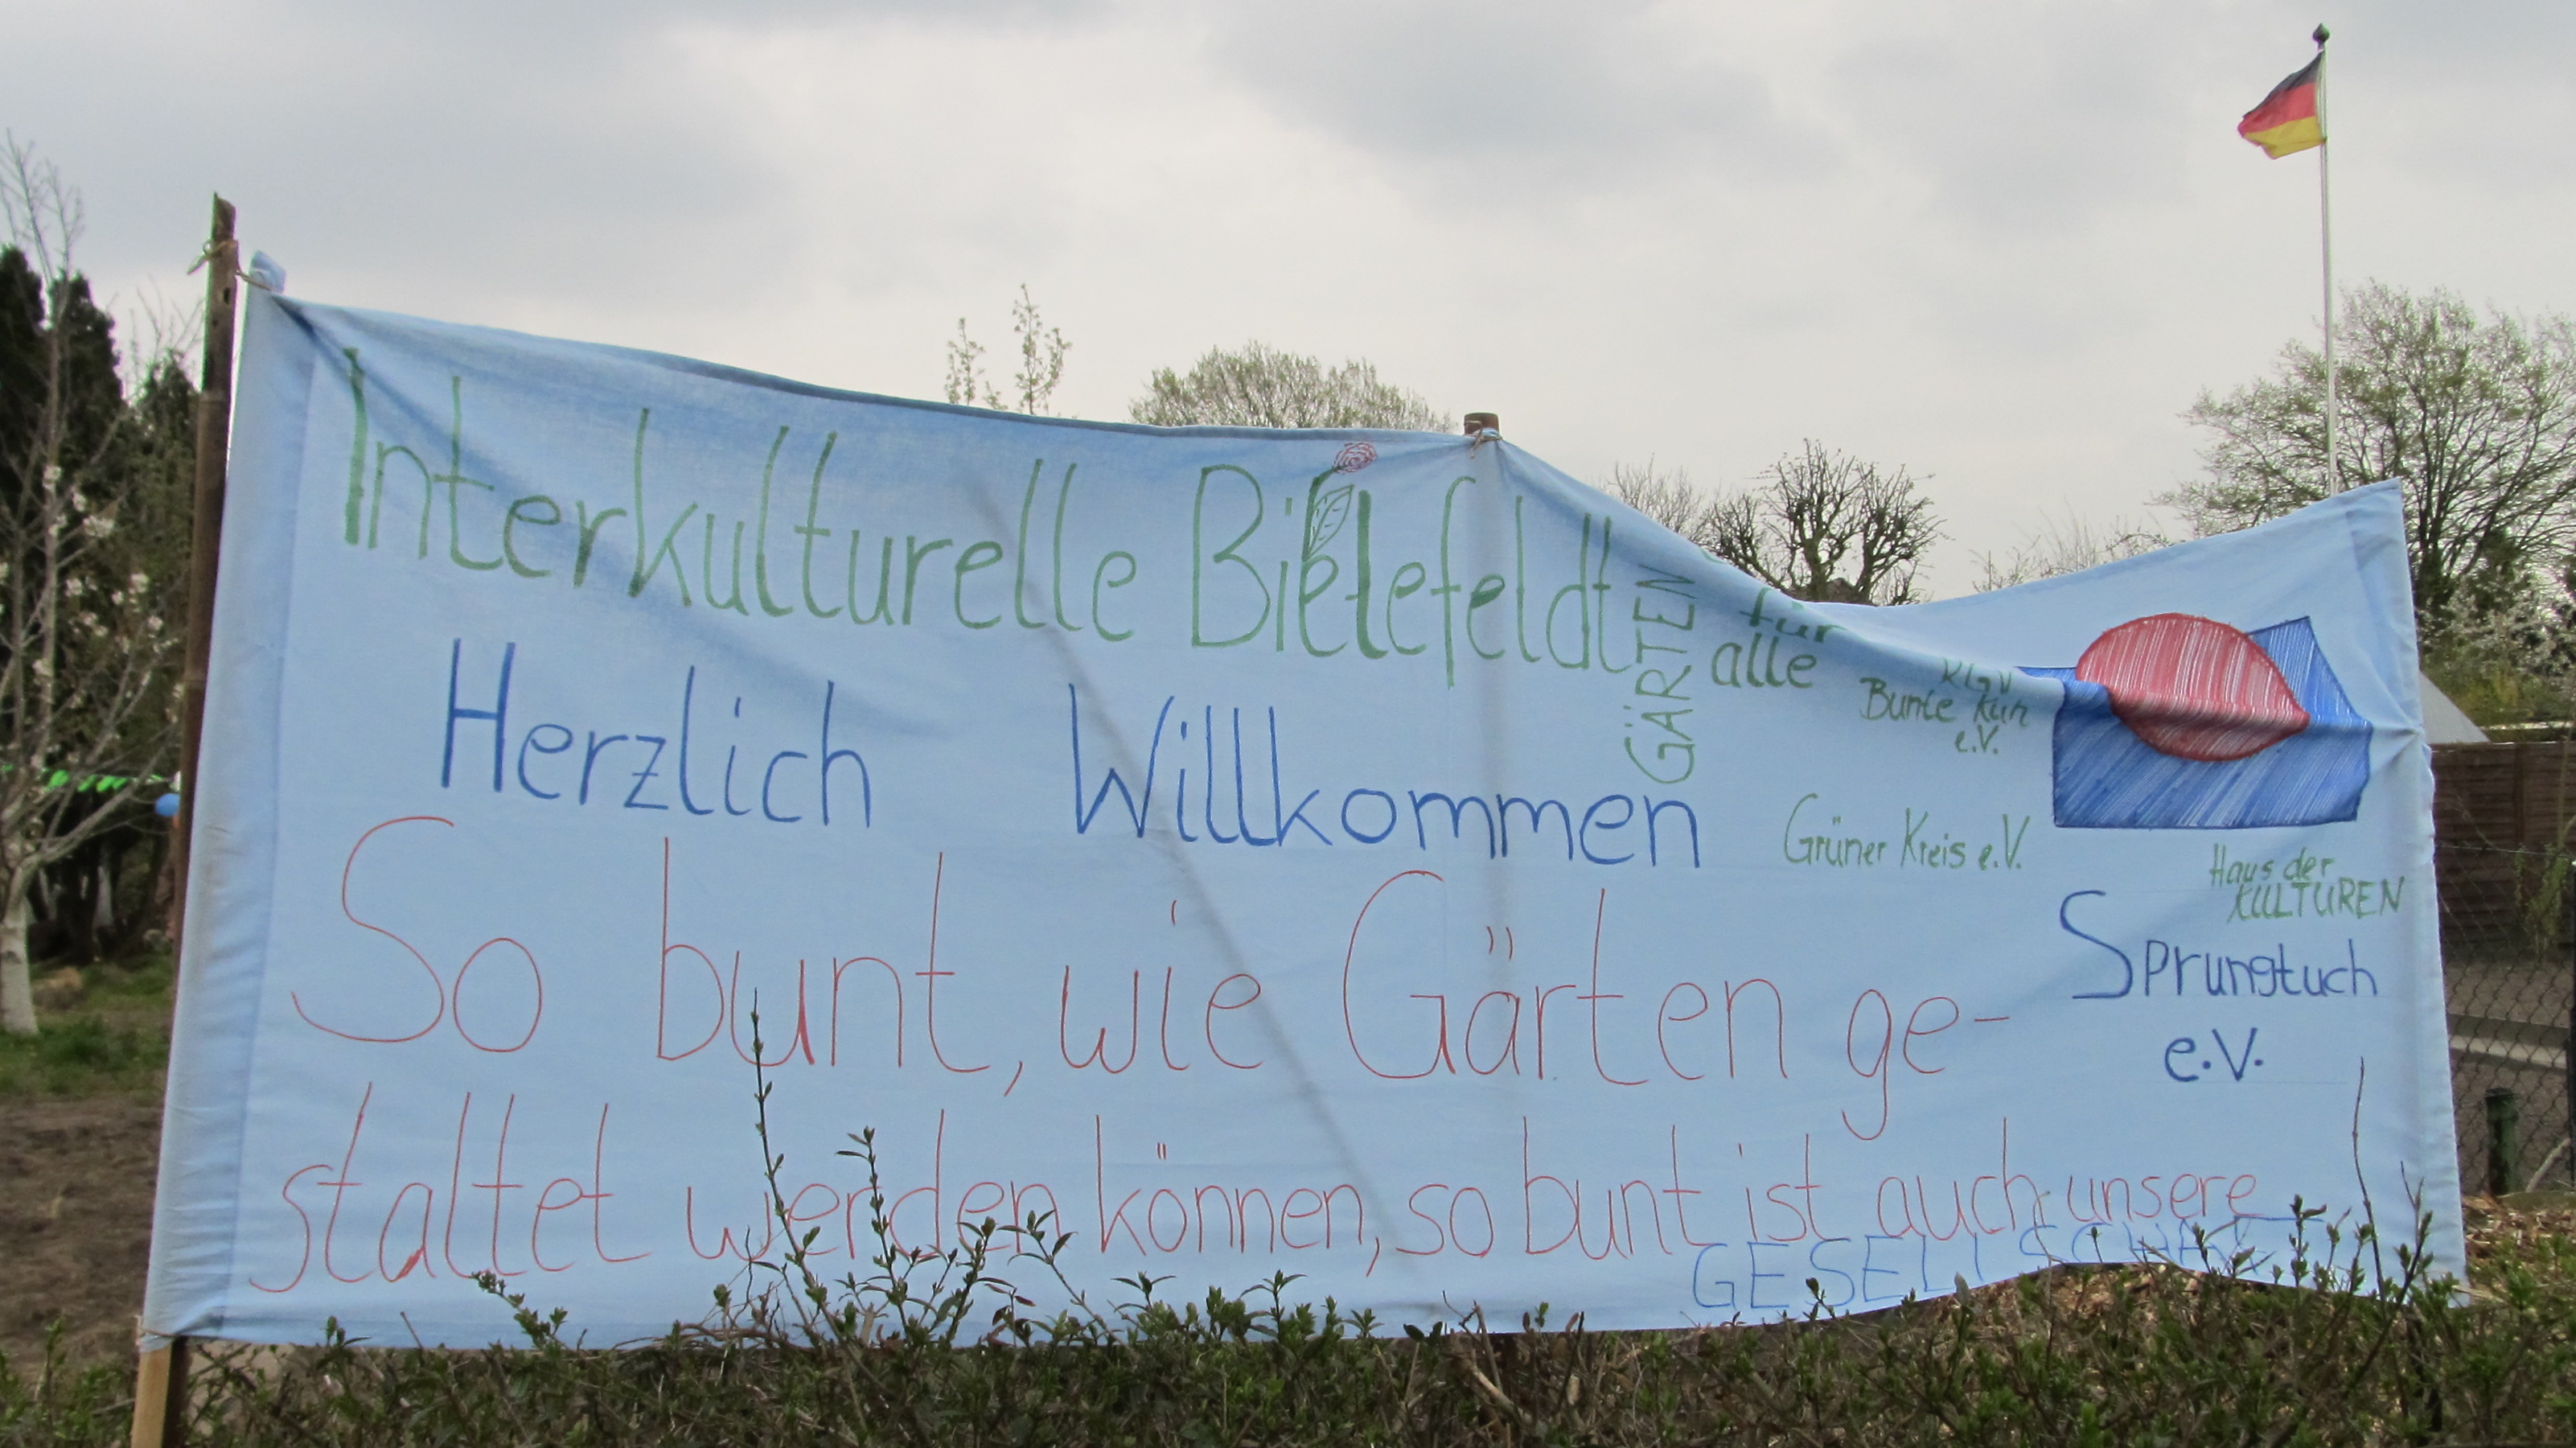 Interkulturelle Bielefeldt
GÄRTEN
für
alle
Herzlich Willkommen
KLGV
Bunte Kuh
e.V.
Grüner Kreis e.V.
Haus der
KULTUREN
Sprungtuch
e.V.
So bunt, wie Gärten ge-
staltet werden können, so bunt ist auch unsere
GESELLSCHAFT